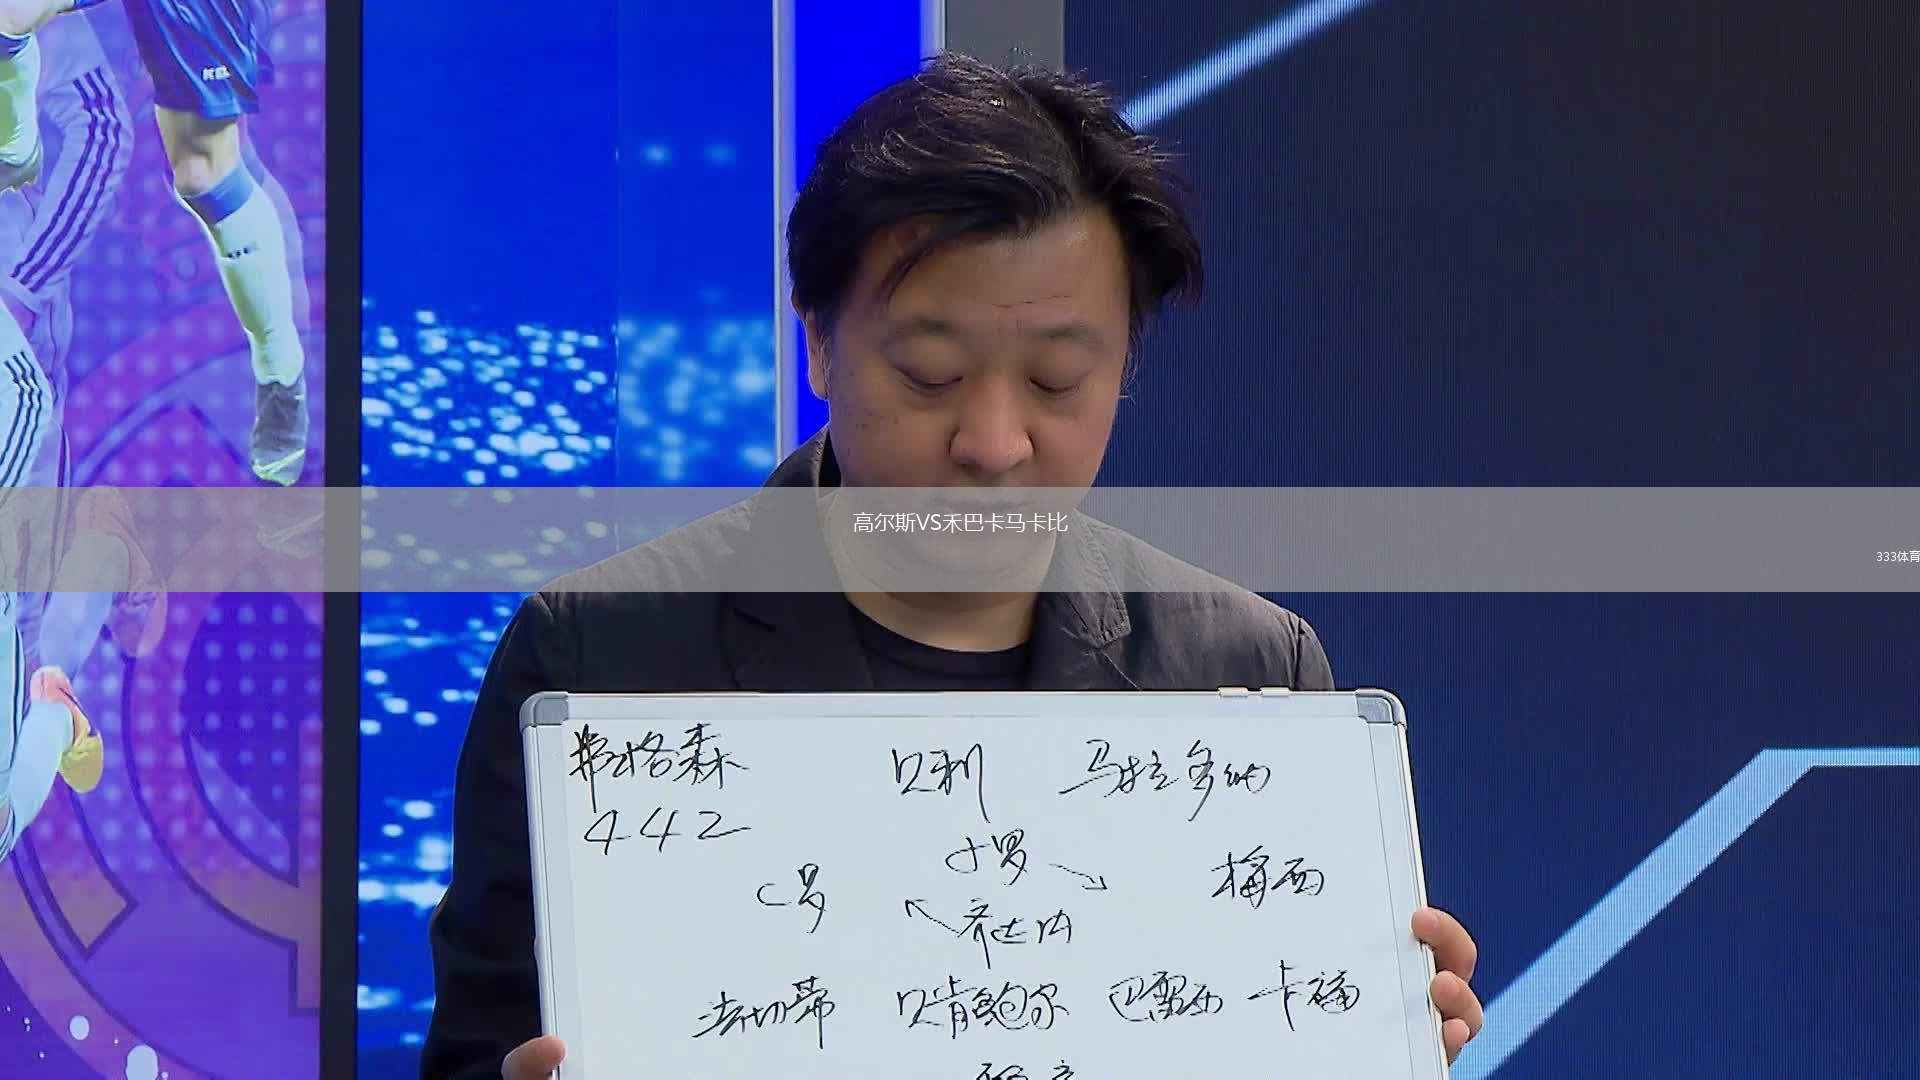 KEL
高尔斯VS禾巴卡马卡比
333体育
弗格森 贝利 马拉多纳
442
小罗
C罗 梅西
齐达内
法切蒂 贝肯鲍尔 巴雷西 卡福